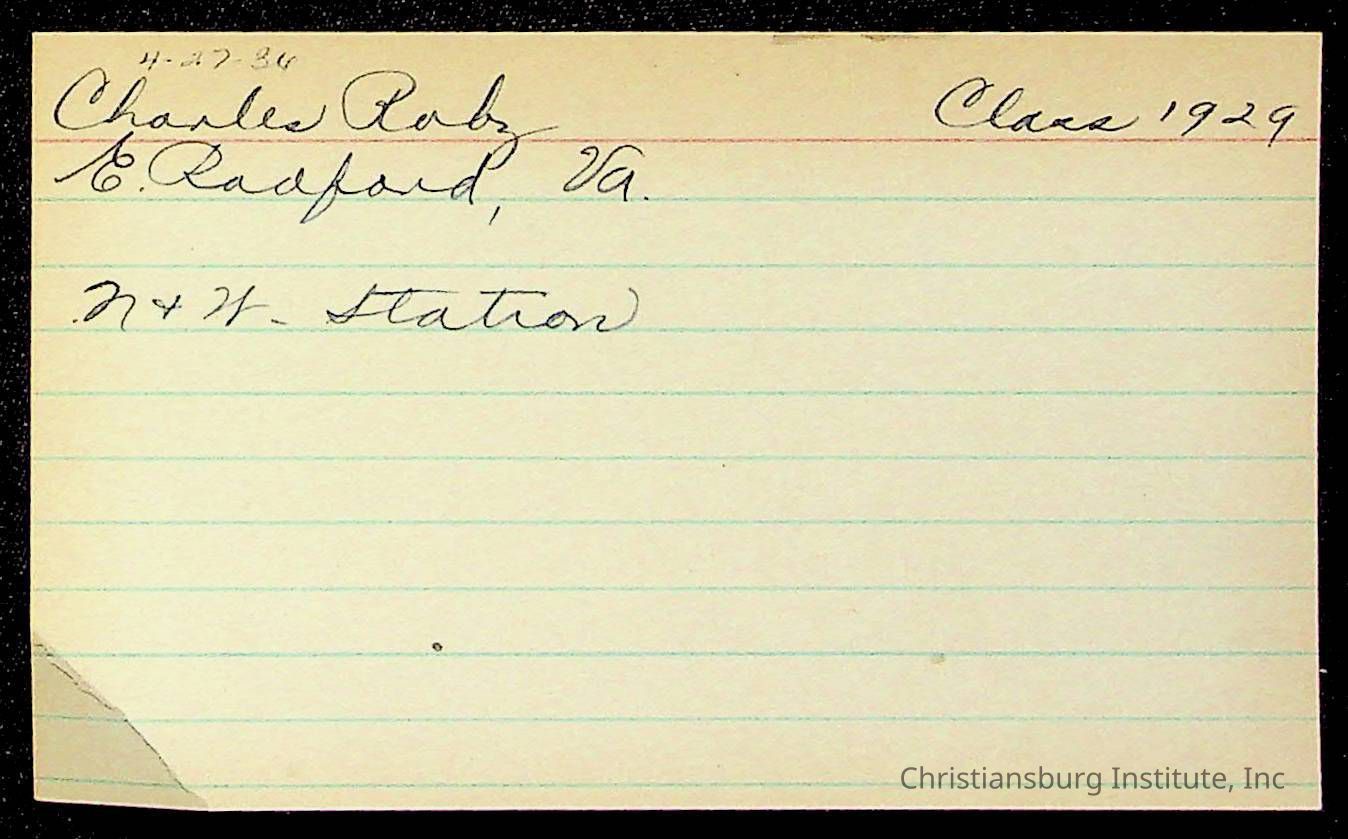 4-27-36
Charles Roby Class 1929
E. Radford, Va.
N & W- Station
Christiansburg Institute, Inc